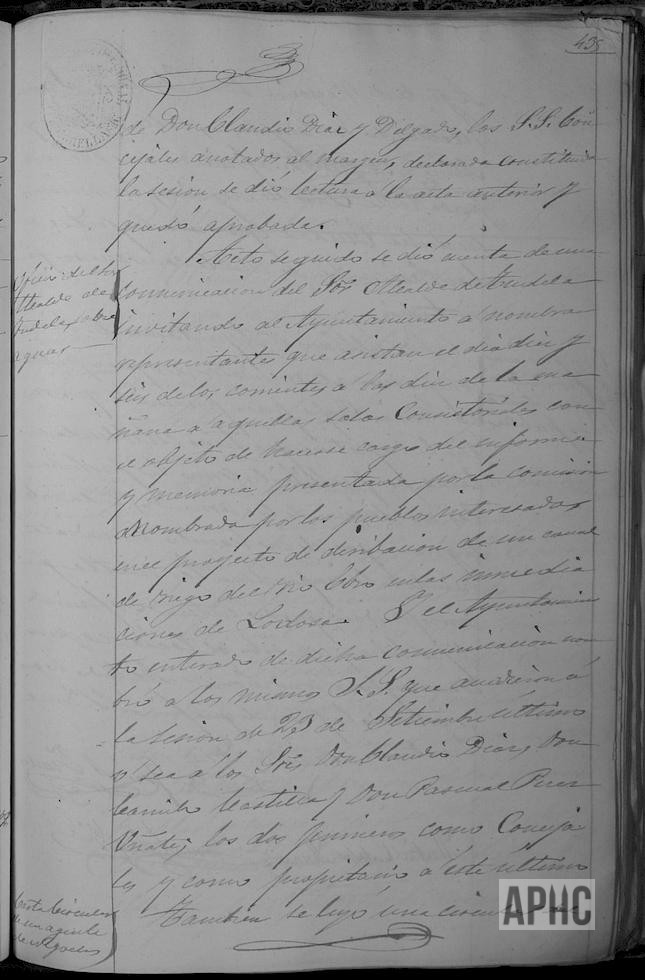 435
de Don Claudio Diaz y Delgado, los S.S. Con-
cejales anotados al margen, declarada constituida
la sesion se dió lectura á la acta anterior y
quedó aprobada.
Acto seguido se dió cuenta de una
Comunicacion del Sor Alcalde de Tudela
invitando al Ayuntamiento a nombrar
representantes que asistan el dia diez y
seis de los corrientes a las diez de la ma-
ñana a aquellas salas Consistoriales con
el objeto de hacerse cargo del informe
y memoria presentada por la comision
nombrada por los pueblos interesados
en el proyecto de deribacion de un canal
de riego del rio Ebro en las inmedia
ciones de Lodosa. Y el Ayuntamien
to enterado de dicha comunicacion nom
bró a los mismos S.S. que acudieron á
la sesion de 23 de Setiembre último
ó sea á los Sres Don Claudio Diaz, Don
Camilo Castilla y Don Pascual Perez
Oñate, los dos primeros como Conceja
les y como propietario a este último
Tambien se leyó una circular de
Oficio del Sor
Alcalde de
Tudela sobre
aguas
Circular
de un agente
de negocios
APHC